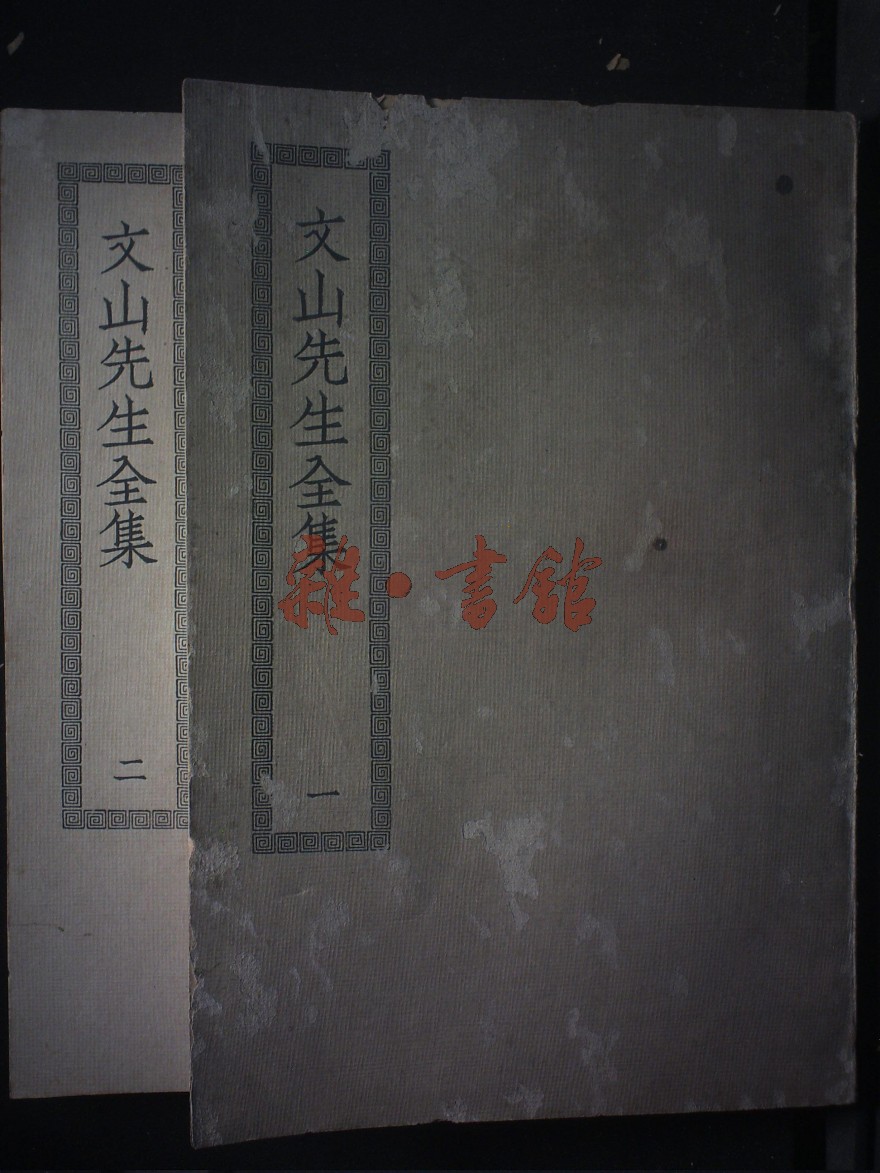 文山先生全集
一
文山先生全集
二
雜·書館